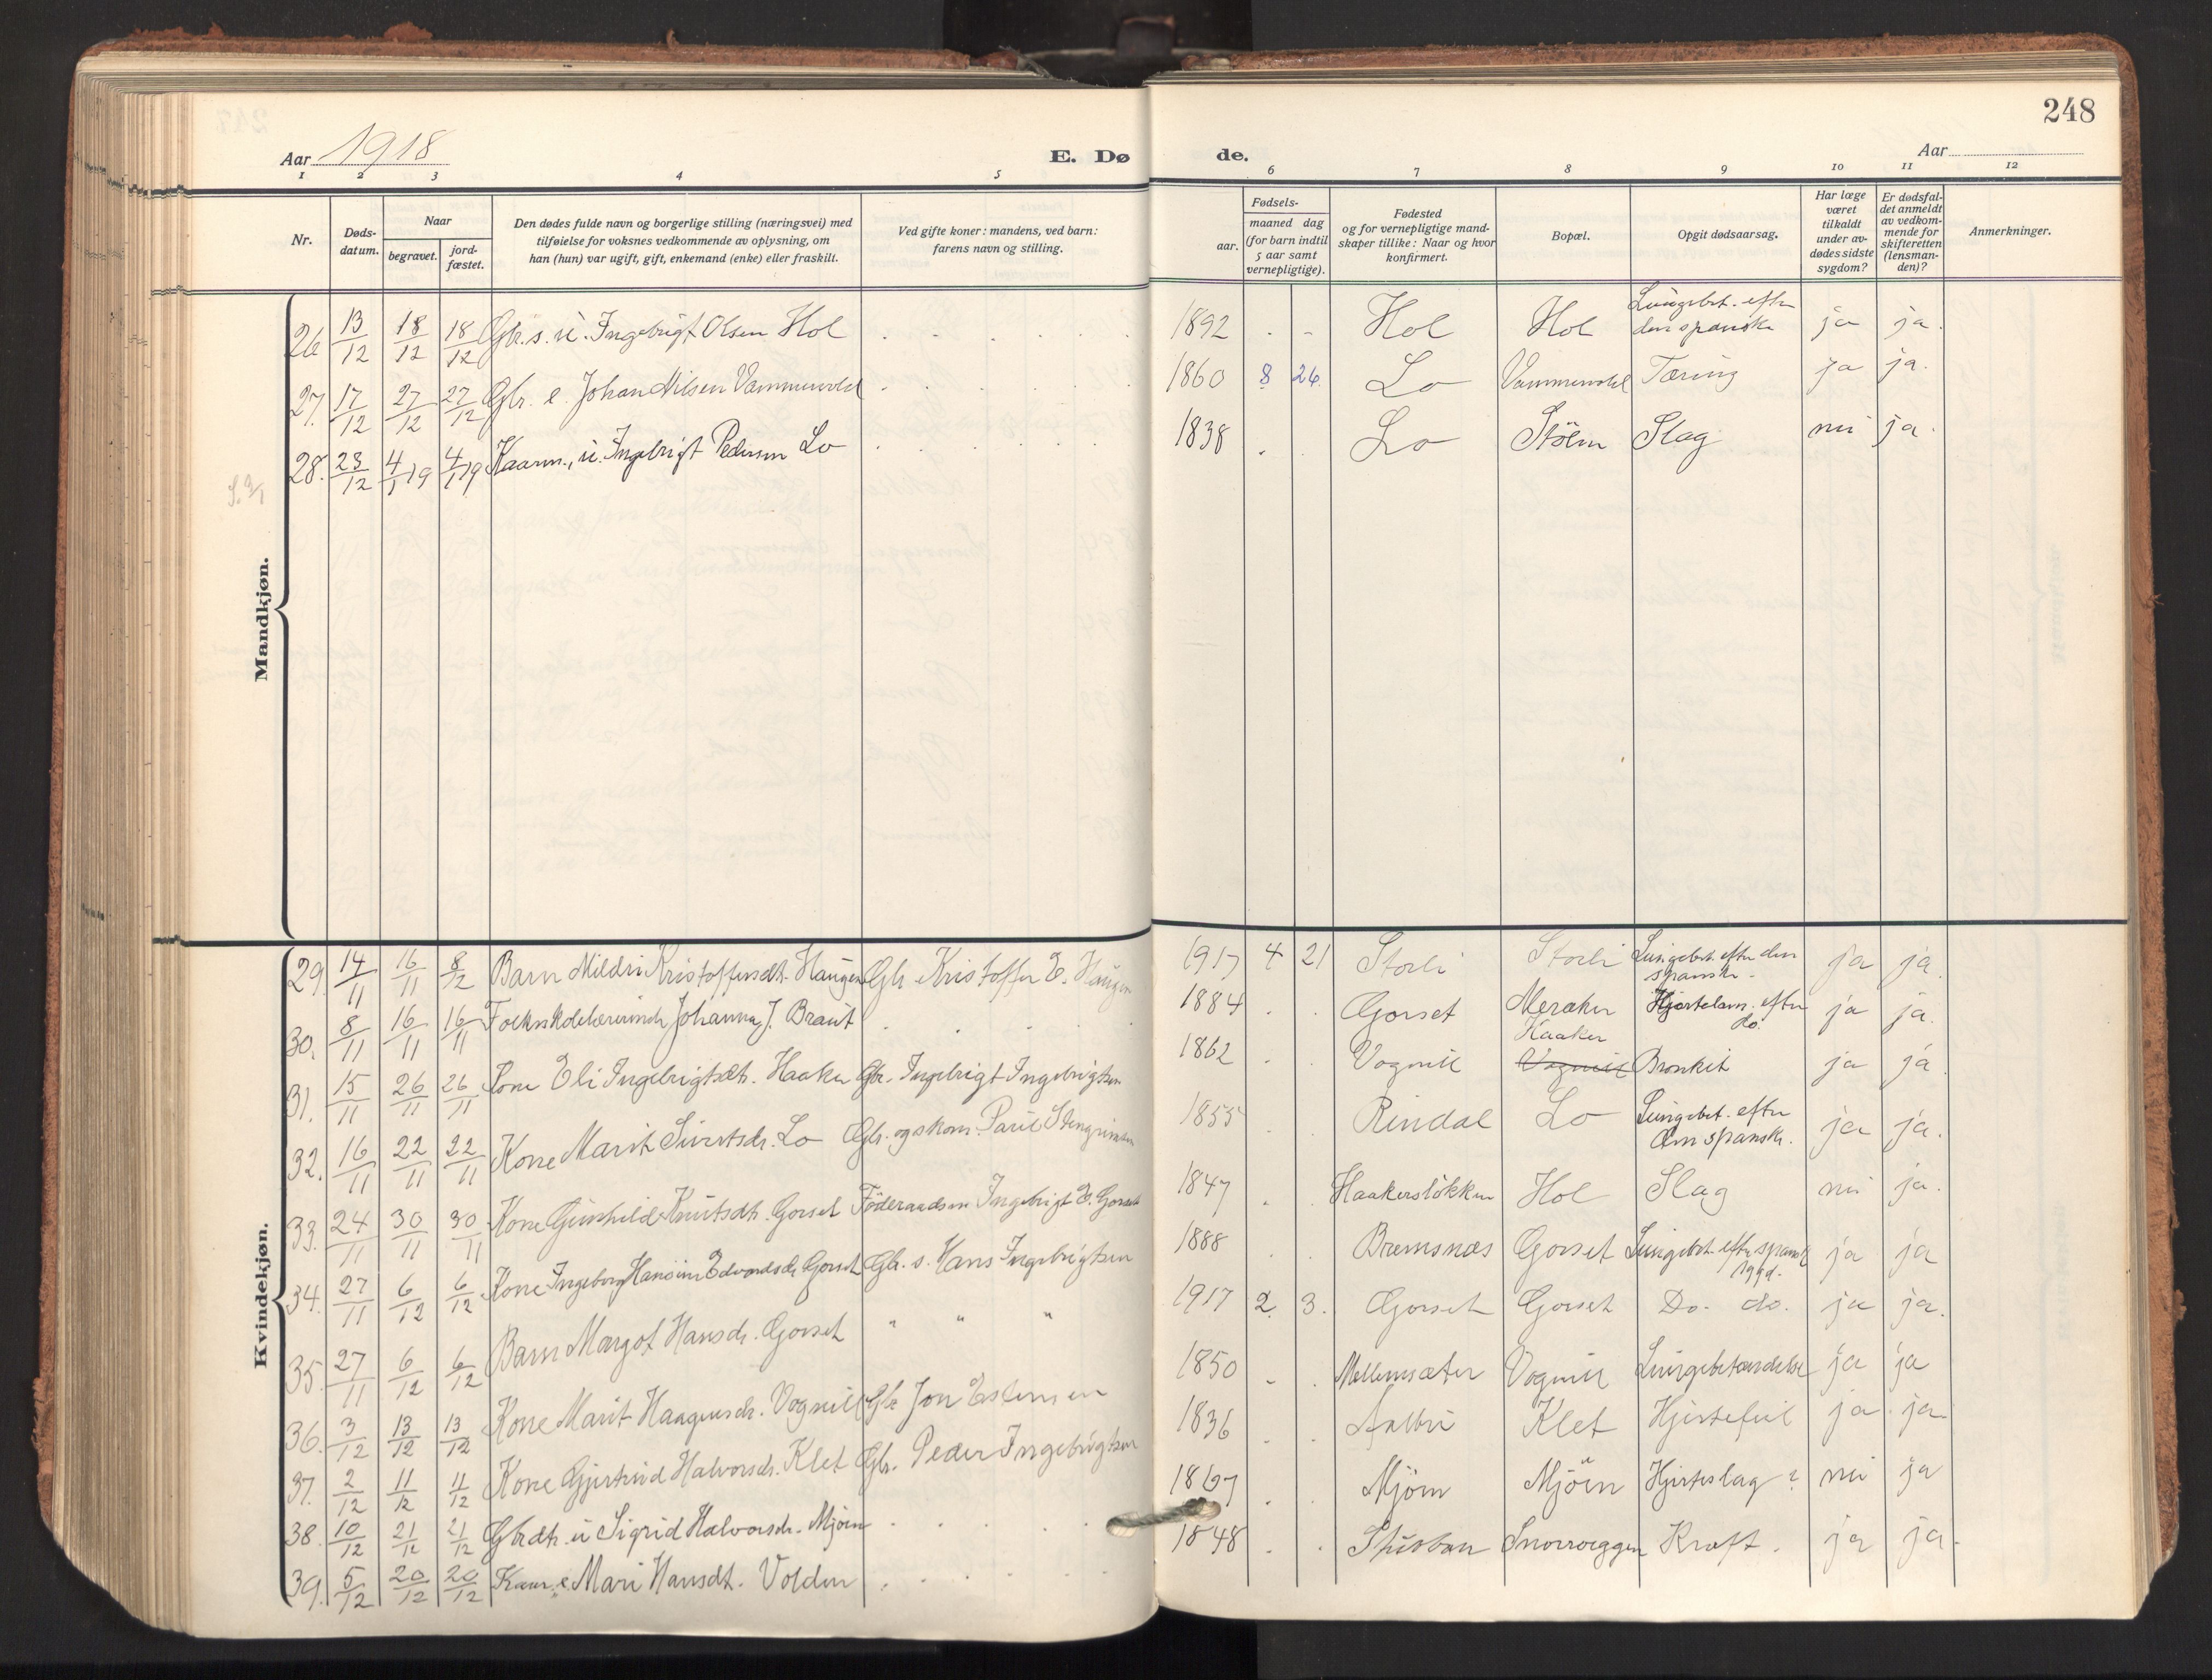 248
Aar 1918 E. Dø de. Aar
1 2 3 4 5 6 7 8 9 10 11 12
Nr. Døds-datum. Naar begravet. jord-fæstet. Den dødes fulde navn og borgerlige stilling (næringsvei) med tilføielse for voksnes vedkommende av oplysning, om han (hun) var ugift, gift, enkemand (enke) eller fraskilt. Ved gifte koner: mandens, ved barn: farens navn og stilling. Fødsels- aar. maaned dag (for barn indtil 5 aar samt vernepligtige). Fødested og for vernepligtige mand-skaper tillike: Naar og hvor konfirmert. Bopæl. Opgit dødsaarsag. Har læge været tilkaldt under av-dødes sidste sygdom? Er dødsfal-det anmeldt av vedkom-mende for skifteretten (lensman-den)? Anmerkninger.
Mandkjøn.
26 13/12 18/12 18/12 Gbr. s. ü. Ingebrigt Olsen Hol 1892 Hol Hol Lungebet. efter den spanske ja ja.
27. 17/12 27/12 27/12 Gbr. e. Johan Nilsen Vammervold 1860 8 26. Lo Vammervold Tæring ja ja.
28. 23/12 4/1 19 4/1 19 Kaarm., ü. Ingebrigt Pedersen Lo 1838 Lo Stöen Slag nei ja.
Kvindekjøn.
29. 14/11 16/11 8/12 Barn Mildri Kristoffersdt. Haugen Gbr Kristoffer E. Haugen 1917 4 21 Storli Storli Lungebet. efter den spanske. ja ja.
30. 8/11 16/11 16/11 Folkeskolelærerinde Johanna J. Braut 1884 Gorset Meraker Hjertelam. efter do. ja ja.
31. 15/11 26/11 26/11 Kone Eli Ingebrigtsdt. Haaker Gbr. Ingebrigt Ingebrigtsen 1862 Vognill Haaker Vognill Bronkit ja ja
32. 16/11 22/11 22/11 Kone Marit Sivertsdr. Lo Gbr. og skom. Paul Stengrimsen 1855 Rindal Lo Lungebet. efter den spansk. ja ja.
33. 24/11 30/11 30/11 Kone Gunhild Knutsdt. Gorset Föderaadsm Ingebrigt E. Gorset 1847 Haakerslökken Hol Slag nei ja.
34. 27/11 6/12 6/12 Kone Ingeborg Hansine Edvardsdr Gorset Gbr. s. Hans Ingebrigtsen 1888 Bremsnæs Gorset Lungebet. efter spansk sygd. ja ja
35. 27/11 6/12 6/12 Barn Margot Hansdr. Gorset " " " 1917 2. 3. Gorset Gorset Do. do. ja ja.
36. 3/12 13/12 13/12 Kone Marit Haagensdr. Vognill Gbr Jon Estensen 1850 Mellemsæter Vognill Lungebetændelse ja ja
37. 2/12 11/12 11/12 Kone Gjertrud Halvorsdr. Klet Gbr. Peder Ingebrigtsen 1836 Aalbu Klet Hjertefeil ja ja.
38. 10/12 21/12 21/12 Gbrdtr. ü Sigrid Halvorsdr. Mjöen 1867 Mjöen Mjöen Hjerteslag ? nei ja
39. 5/12 20/12 20/12 Kaar. e. Mari Hansdt. Volden 1848 Stuoban Snorroeggen Kræft. ja ja.